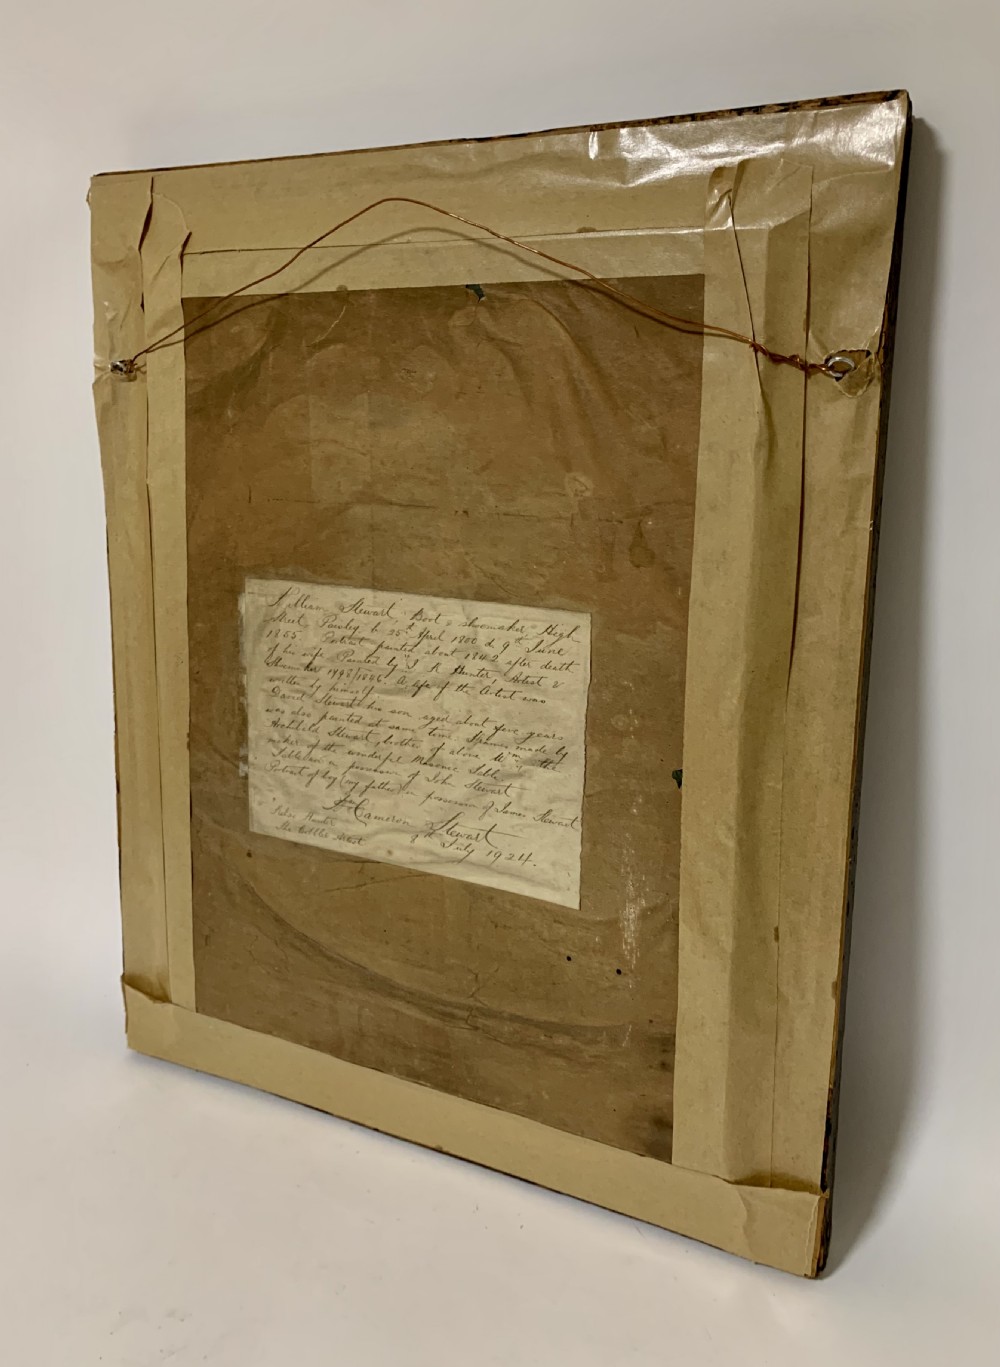 William Stewart, Boot & shoemaker, High
Street, Paisley b. 25th April 1800 d. 9th June
1855. Portrait painted about 1842 after death
of his wife. Painted by J R Hunter, Artist &
Shoemaker A life of the Artist was
written by himself
David Stewart his son aged about five years
was also painted at same time. Frames made by
Archibald Stewart, brother of above Wm, the
maker of the wonderful Masonic Table,
Table in possession of John Stewart
Portrait of boy, my father, in possession of James Stewart
Cameron Stewart
9th July 1924.
Hunter
The Cobbler Artist